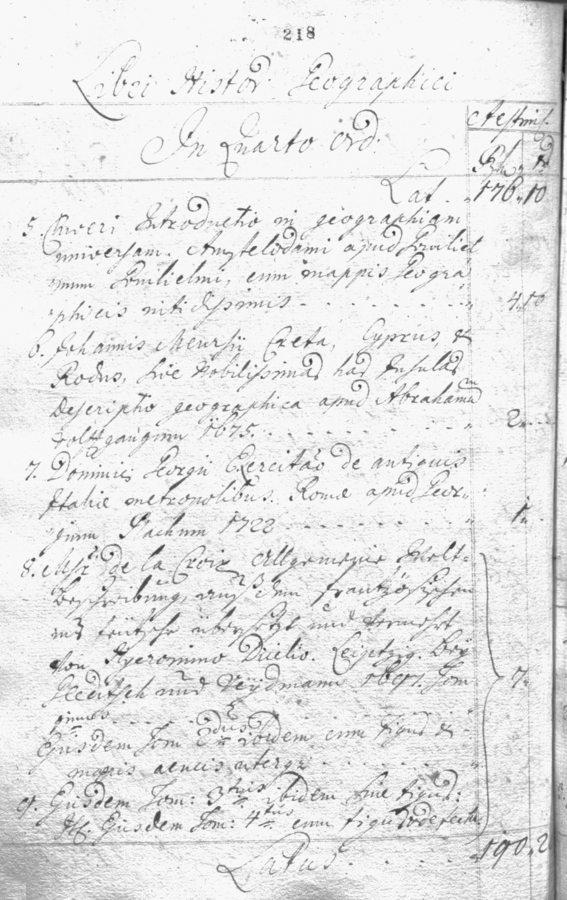 218
Libri Histor: Geographici
In Quarto Ord:
Aestim:
Lat. „ 176 „ 10
5. Cluveri Introductio in geographiam
universam. Amstelodami apud Guiliel
mum Guilielmi, cum mappis Geogra
phicis nitidissimis . . . . . . 4 „ 10
6. Johannis Meursij Creta, Cyprus, &
Rodus, sive Nobilissimas has Insulas
Descriptio geographica apud Abrahamum
Wolffgangum 1675. . . . . . 2 „
7. Dominici Georgii Exercitao de antiquis
Italiæ metropolibus. Romæ apud Geor:
gium 1722 . . . . . 1 „
8. Msr. De la Croix Allgemeine Welt-
Beschreibung, auß dem frantzösischen
ins teütsche übersetzt und vermehrt
von Hyeronimo Dicelio. Leiptzig. bey
Gleditsch und Weydmann 1697. Tom 7 „
primus . . . .
Ejusdem Tom 2dus ibidem cum figuris &
mappis aeneis uterq:
9. Ejusdem Tom: 3tius ibidem sine figuris:
Ejusdem Tom: 4tus cum figuris
Latus . . . . „ 190 „ 2